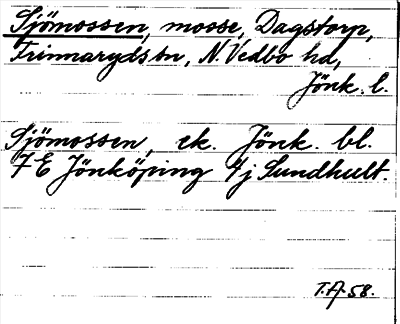 Sjömossen, mosse, Dagstorp,
Frinnaryds sn, N. Vedbo hd,
Jönk. l.
Sjömossen, ek. Jönk. bl.
7 E Jönköping 4j Sundhult.
T.A. 58.